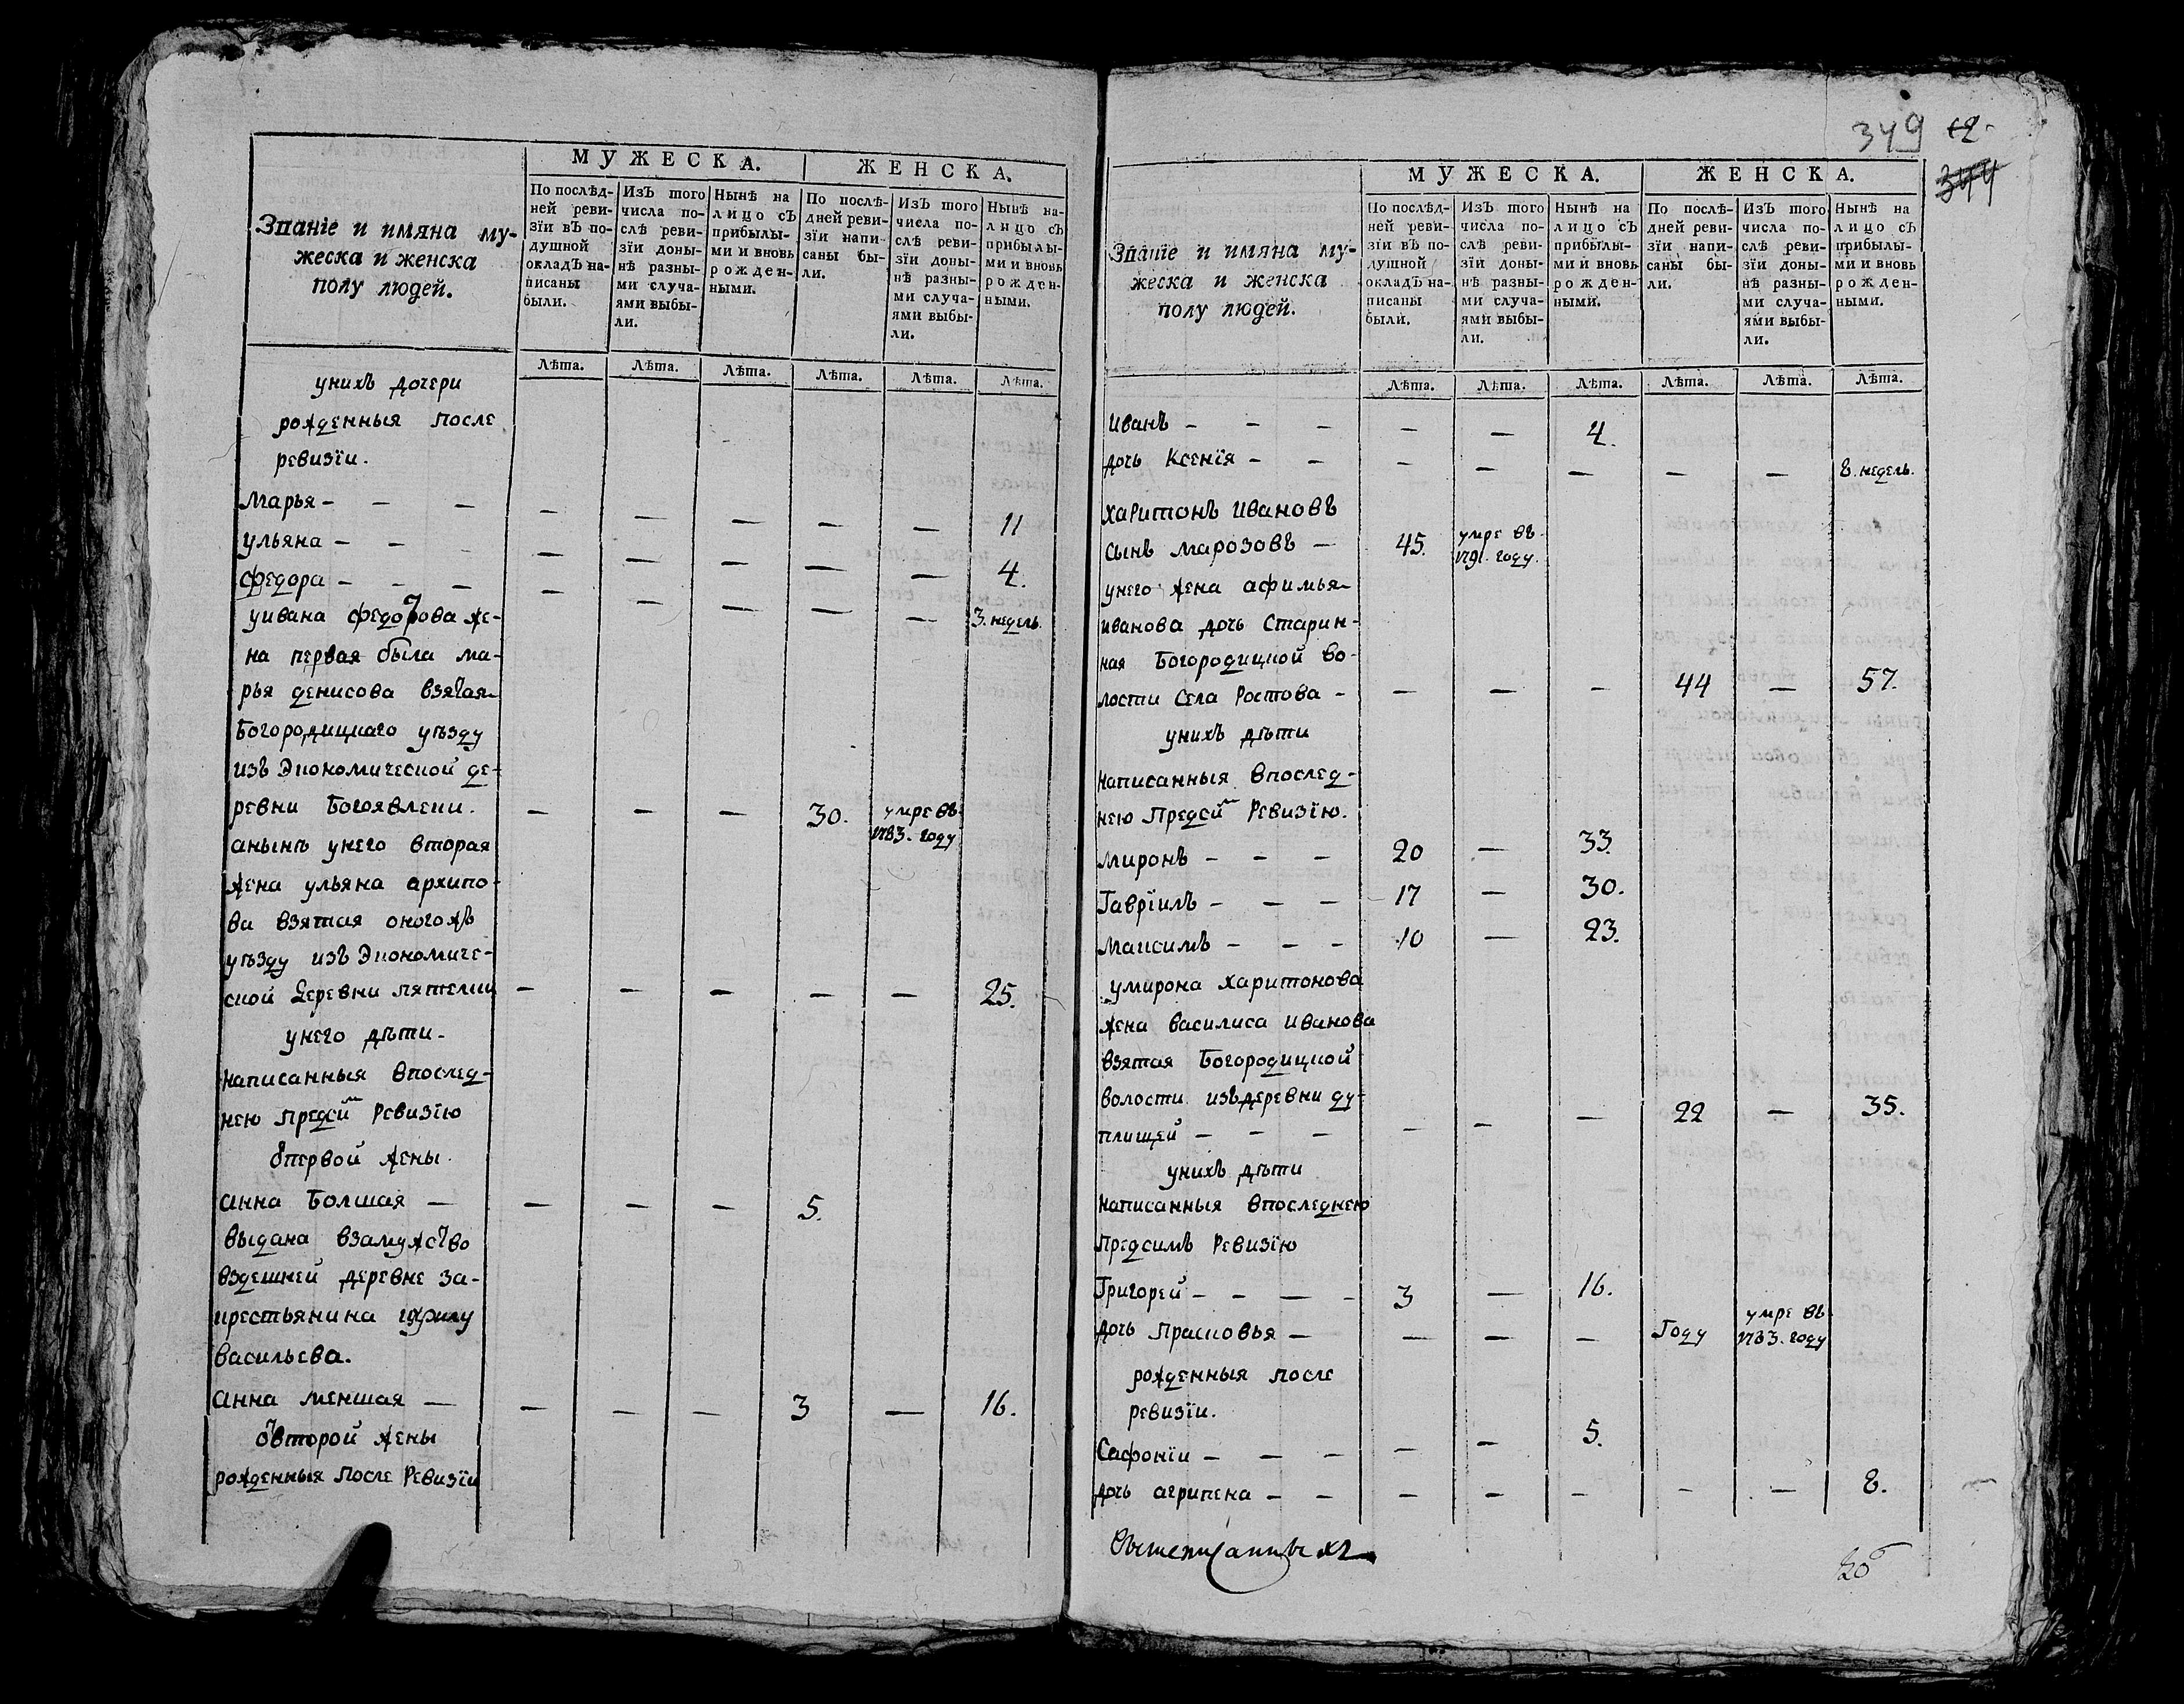 Званіе и имяна му-
жеска и женска
полу людей.
МУЖЕСКА.
ЖЕНСКА.
По послѣд-
ней реви-
зіи въ по-
душной
окладъ на-
писаны
были.
Изъ того
числа по-
слѣ реви-
зіи доны-
нѣ разны-
ми случа-
ями выбы-
ли.
Нынѣ на
лицо съ
прибылы-
ми и вновь
рожден-
ными.
По послѣ-
дней реви-
зіи напи-
саны бы-
ли.
Изъ того
числа по-
слѣ реви-
зіи доны-
нѣ разны-
ми случа-
ями выбы-
ли.
Нынѣ на-
лицо съ
прибылы-
ми и вновь
рожден-
ными.
Лѣта. Лѣта. Лѣта. Лѣта. Лѣта. Лѣта.
унихъ дочери
рожденныя после
ревизїи.
марья - - - - - - - - 11
ульяна - - - - - - - - 4.
федора - - - - - - - - 3. недель
уивана федорова же-
на первая была ма-
рья денисова взятая
Богородицкаго уѣзду
изъ Экономической де-
ревни Богоявлени. - - - 30. умре въ
1783. году
анынѣ унего вторая
жена ульяна архипо-
ва взятая оногожъ
уѣзду изъ Экономиче-
ской деревни - - - - - 25.
унего дѣти.
написанныя впослед-
нею предсим ревизїю
отпервой жены.
анна болшая - - - - 5.
выдана взамужство
вздешней деревне за-
крестьянина
васильева.
анна меншая - - - - 3 - 16.
отвторой жены
рожденныя после ревизїи
349 12
344
Званіе и имяна му-
жеска и женска
полу людей.
МУЖЕСКА.
ЖЕНСКА.
По послѣд-
ней реви-
зіи въ по-
душной
окладъ на-
писаны
были.
Изъ того
числа по-
слѣ реви-
зіи доны-
нѣ разны-
ми случа-
ями выбы-
ли.
Нынѣ на
лицо съ
прибылы-
ми и вновь
рожден-
ными.
По послѣ-
дней реви-
зіи напи-
саны бы-
ли.
Изъ того
числа по-
слѣ реви-
зіи доны-
нѣ разны-
ми случа-
ями выбы-
ли.
Нынѣ на
лицо съ
прибылы-
ми и вновь
рожден-
ными.
Лѣта. Лѣта. Лѣта. Лѣта. Лѣта. Лѣта.
иванъ - - - - - 4.
дочь Ксенїя - - - - - - - 8. недель.
харитонъ ивановъ
сынъ марозовъ - 45. умре въ
1791. году.
унего жена афимья
иванова дочь старин-
ная Богородицкой во-
лости села ростова - - - - 44 - 57.
унихъ дѣти
написанныя впослед-
нею предсим ревизїю.
миронъ - - - 20 - 33.
Гаврїилъ - - - 17 - 30.
максимъ - - - 10 - 23.
умирона харитонова
жена василиса иванова
взятая Богородицкой
волости изъдеревни ду-
плищей - - - - - - 22 - 35.
унихъ дѣти
написанныя впоследнею
предсимъ ревизїю
Григорей - - - - 3 - 16.
дочь прасковья - - - - Году умре въ
1783. году
рожденныя после
ревизїи.
Сафонїи - - - - - 5.
дочь агрипена - - - - - - - 8.
Вышеписанныхъ